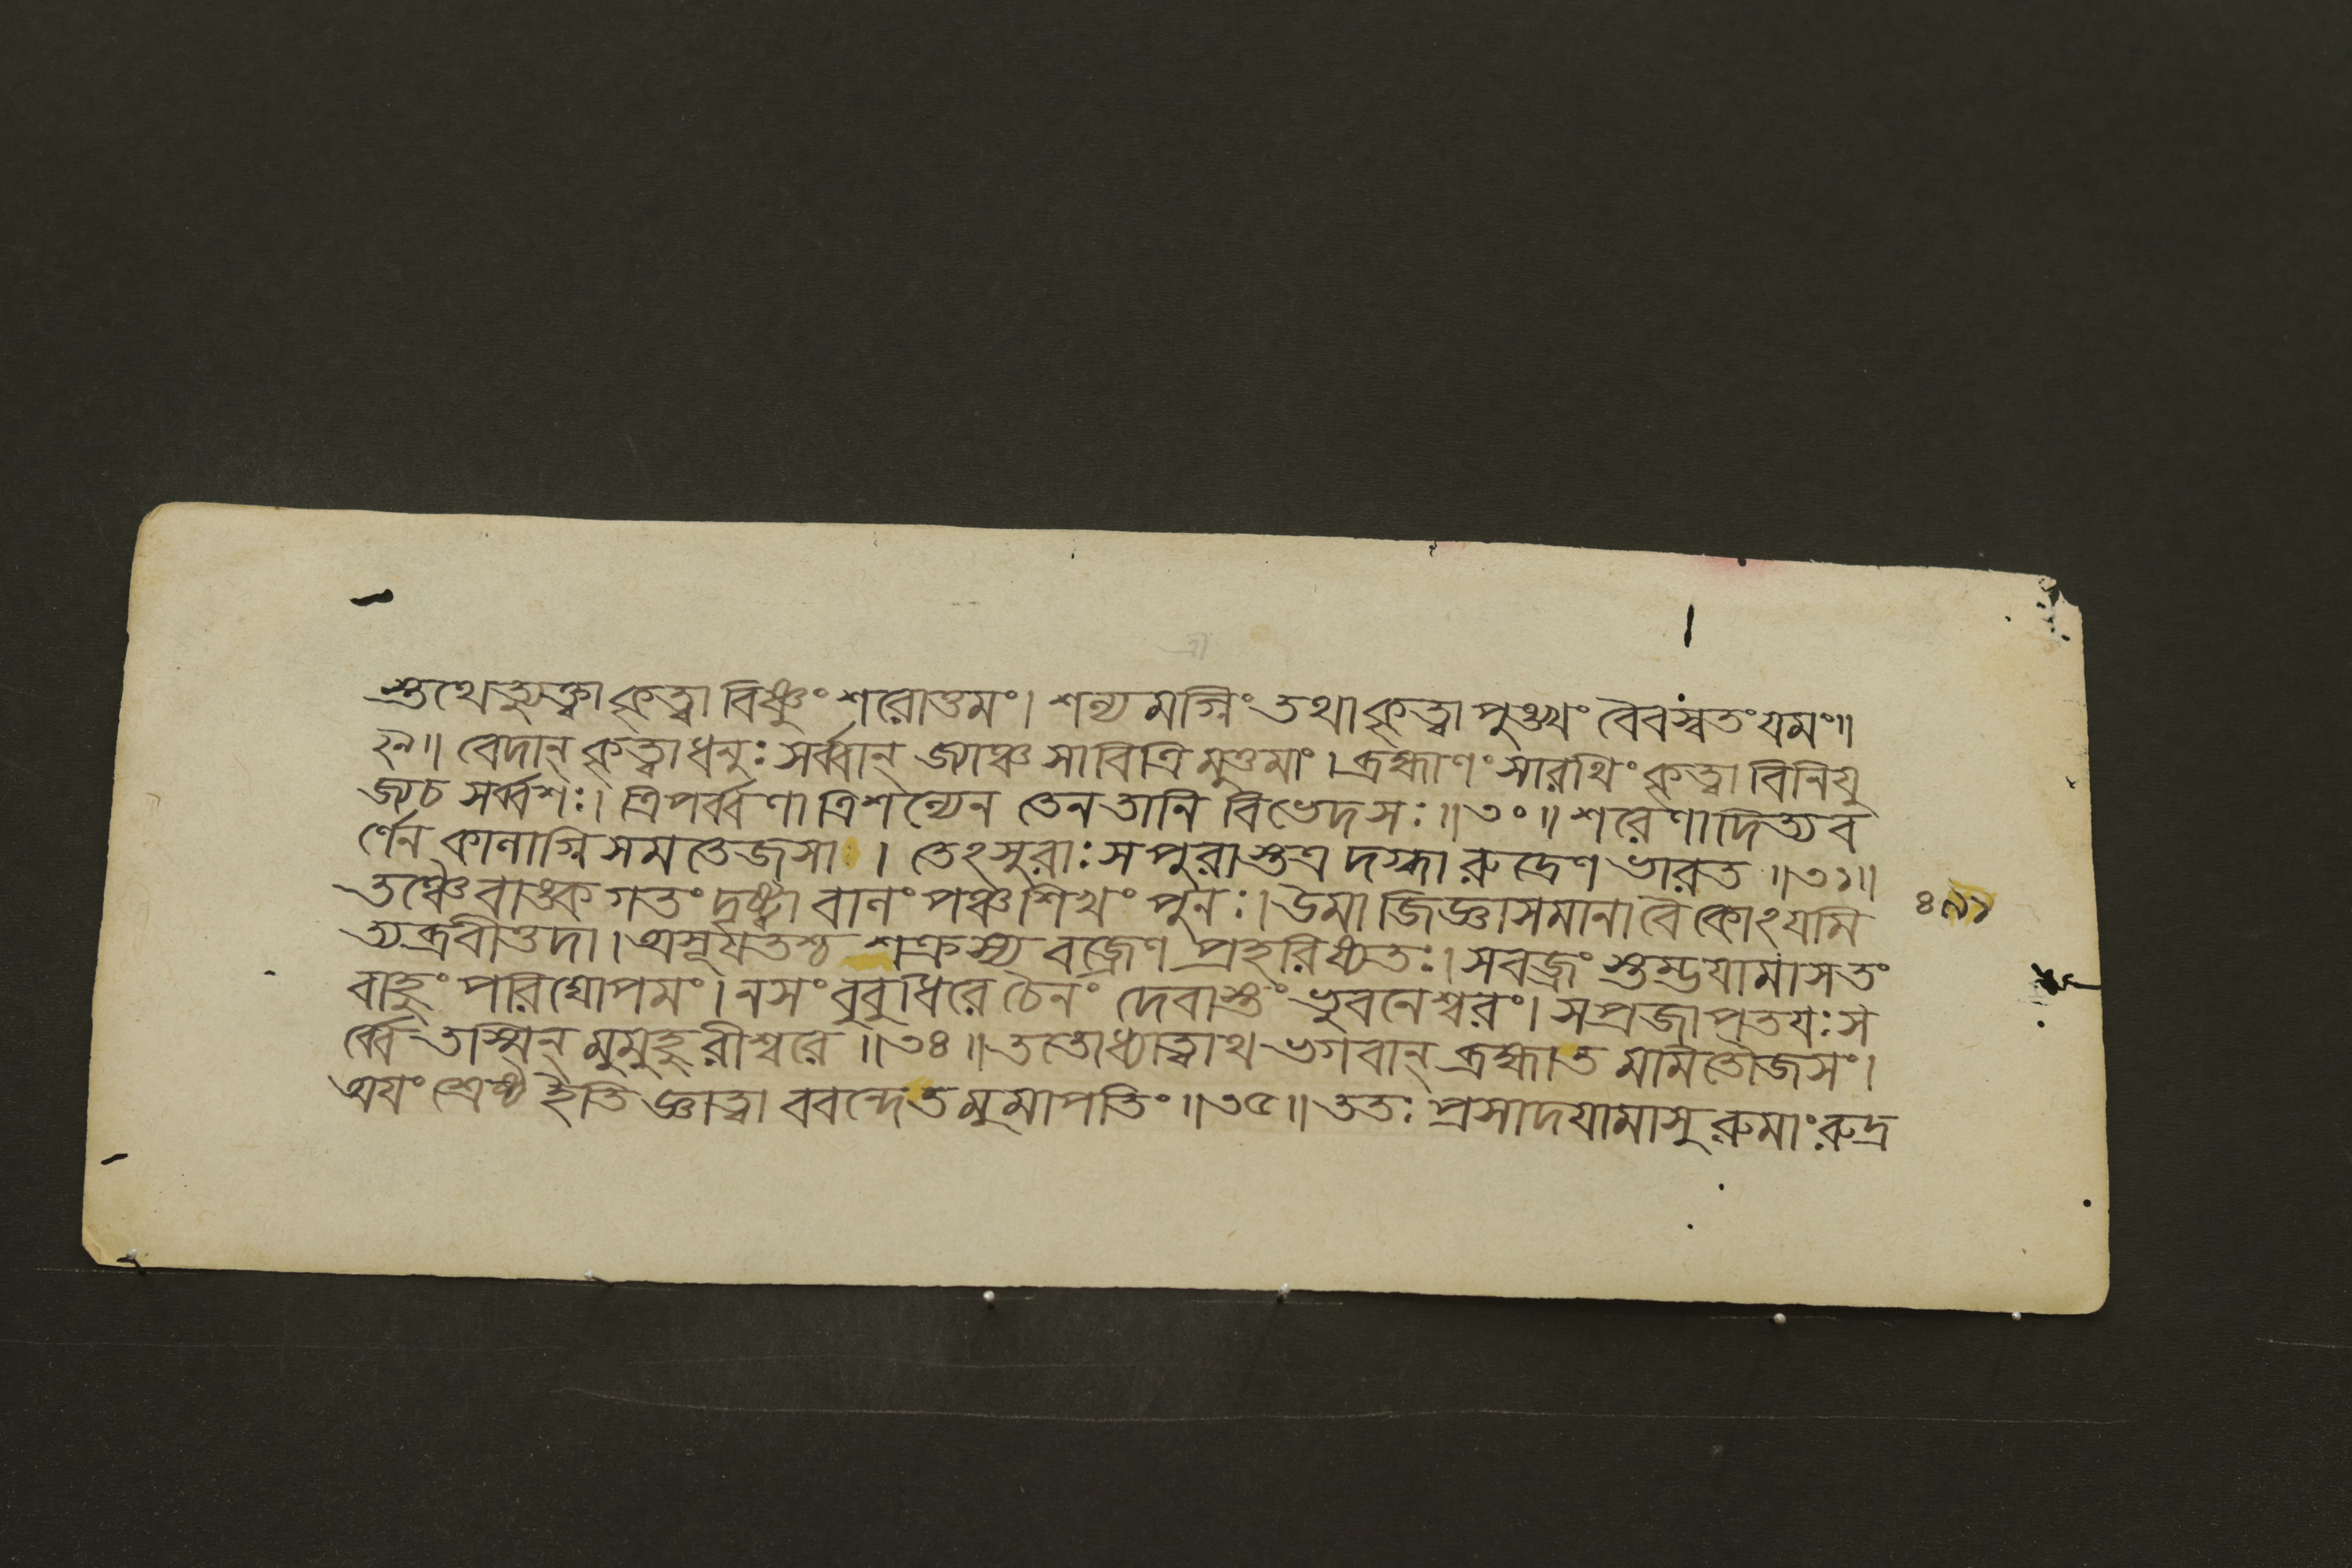 স্তথেত্যুক্ত্বা কৃত্বা বিষ্ণুং শরোত্তমং। শল্য মগ্নিং তথা কৃত্বা পুঙ্খং বৈবস্বতং যমং॥
২৯॥ বেদান্ কৃত্বা ধনুঃ সর্ব্বান্ জ্যাঞ্চ সাবিত্রি মুত্তমাং। ব্রহ্মাণং সারথিং কৃত্বা বিনিযু
জ্য চ সর্ব্বশঃ। ত্রিপর্ব্বণা ত্রিশল্যেন তেন তানি বিভেদ সঃ॥৩০॥ শরেণাদিত্যব
র্ণেন কালাগ্নি সম তেজসা । তেঽসুরাঃ স পুরাস্তত্র দগ্ধা রুদ্রেণ ভারত ॥৩১॥
তঞ্চৈবাঙ্ক গতং দৃষ্ট্বা বালং পঞ্চশিখং পুনঃ। উমা জিজ্ঞাসমানা বৈ কোঽযমি
ত্যব্রবীত্তদা। অসূযতশ্চ শক্রস্য বজ্রেণ প্রহরিষ্যতঃ। সবজ্রং স্তম্ভযামাস তং
বাহুং পরিঘোপমং। ন সং বুবুধিরে চৈনং দেবাস্তং ভুবনেশ্বরং। স প্রজাপতযঃ স
র্ব্বে তস্মিন্ মুমুহু রীশ্বরে ॥৩৪॥ ততো ধ্যাত্বাথ ভগবান্ ব্রহ্মা ত মমিতৌজসং।
অযং শ্রেষ্ঠ ইতি জ্ঞাত্বা ববন্দে ত মুমাপতিং ॥৩৫॥ ততঃ প্রসাদযামাসু রুমাং রুদ্র